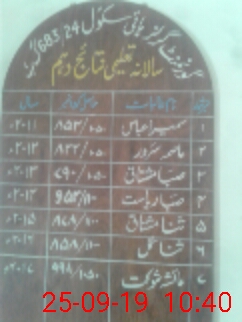 گورنمنٹ گرلز ہائی سکول 683/24 گ ب
سالانہ تعلیمی نتائج دہم
نمبرشمار نام طالبات حاصل کردہ نمبر سال
۱ سمیرا عباس ۸۵۳/۱۰۵۰ ۲۰۱۱ء
۲ عاصمہ سرور ۸۲۲/۱۰۵۰ ۲۰۱۲ء
۳ صبا مشتاق ۷۹۰/۱۰۵۰ ۲۰۱۳ء
۴ صبا ریاست ۹۵۳/۱۱۰۰ ۲۰۱۴ء
۵ ثنا مشتاق ۸۷۸/۱۱۰۰ ۲۰۱۵ء
۶ ثنا گل ۸۵۸/۱۱۰۰ ۲۰۱۶ء
۷ عائشہ شوکت ۹۹۸/۱۰۵۰ ۲۰۱۷ء
25-09-19 10:40